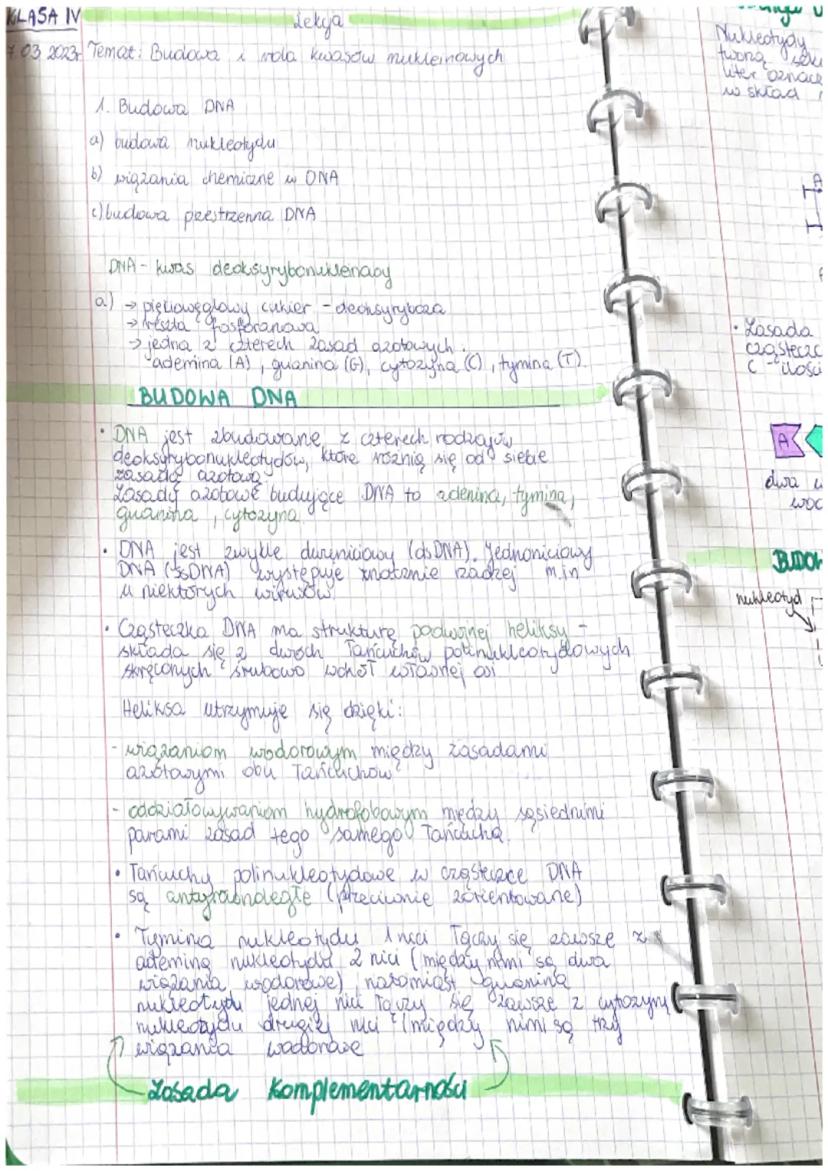 KLASA IV
Lekcja
7.03.2023r Temat: Budowa i rola kwasów nukleinowych
1. Budowa DNA
a) budowa nukleotydu
b) wiązania chemiczne w DNA
c) budowa przestrzenna DNA
DNA - kwas deoksyrybonukleinowy
a) → pięciowęglowy cukier - deoksyryboza
→ reszta fosforanowa
→ jedna z czterech zasad azotowych:
adenina (A), guanina (G), cytozyna (C), tymina (T).
BUDOWA DNA
• DNA jest zbudowane z czterech rodzajów
deoksyrybonukleotydów, które różnią się od siebie
zasadą azotową.
Zasady azotowe budujące DNA to adenina, tymina,
guanina, cytozyna
• DNA jest zwykle dwuniciowy (dsDNA). Jednoniciowy
DNA (ssDNA) występuje znacznie rzadziej m.in
u niektórych wirusów
• Cząsteczka DNA ma strukturę podwójnej heliksy -
składa się z dwóch łańcuchów polinukleotydowych
skręconych śrubowo wokół własnej osi
Heliksa utrzymuje się dzięki:
- wiązaniom wodorowym między zasadami
azotowymi obu łańcuchów
- oddziaływaniom hydrofobowym między sąsiednimi
parami zasad tego samego łańcucha.
• Łańcuchy polinukleotydowe w cząsteczce DNA
są antyrównoległe (przeciwnie zorientowane)
• Tymina nukleotydu 1 nici łączy się zawsze z
adeniną nukleotydu 2 nici (między nimi są dwa
wiązania wodorowe) natomiast guanina
nukleotydu jednej nici łączy się zawsze z cytozyną
nukleotydu drugiej nici (między nimi są trzy
wiązania wodorowe
Zasada komplementarności
Nukleotydy
tworzą
liter oznacz
w skład
A
• Zasada
cząsteczc
C - ilości
A
dwa w
wod
BUDOW
nukleotyd